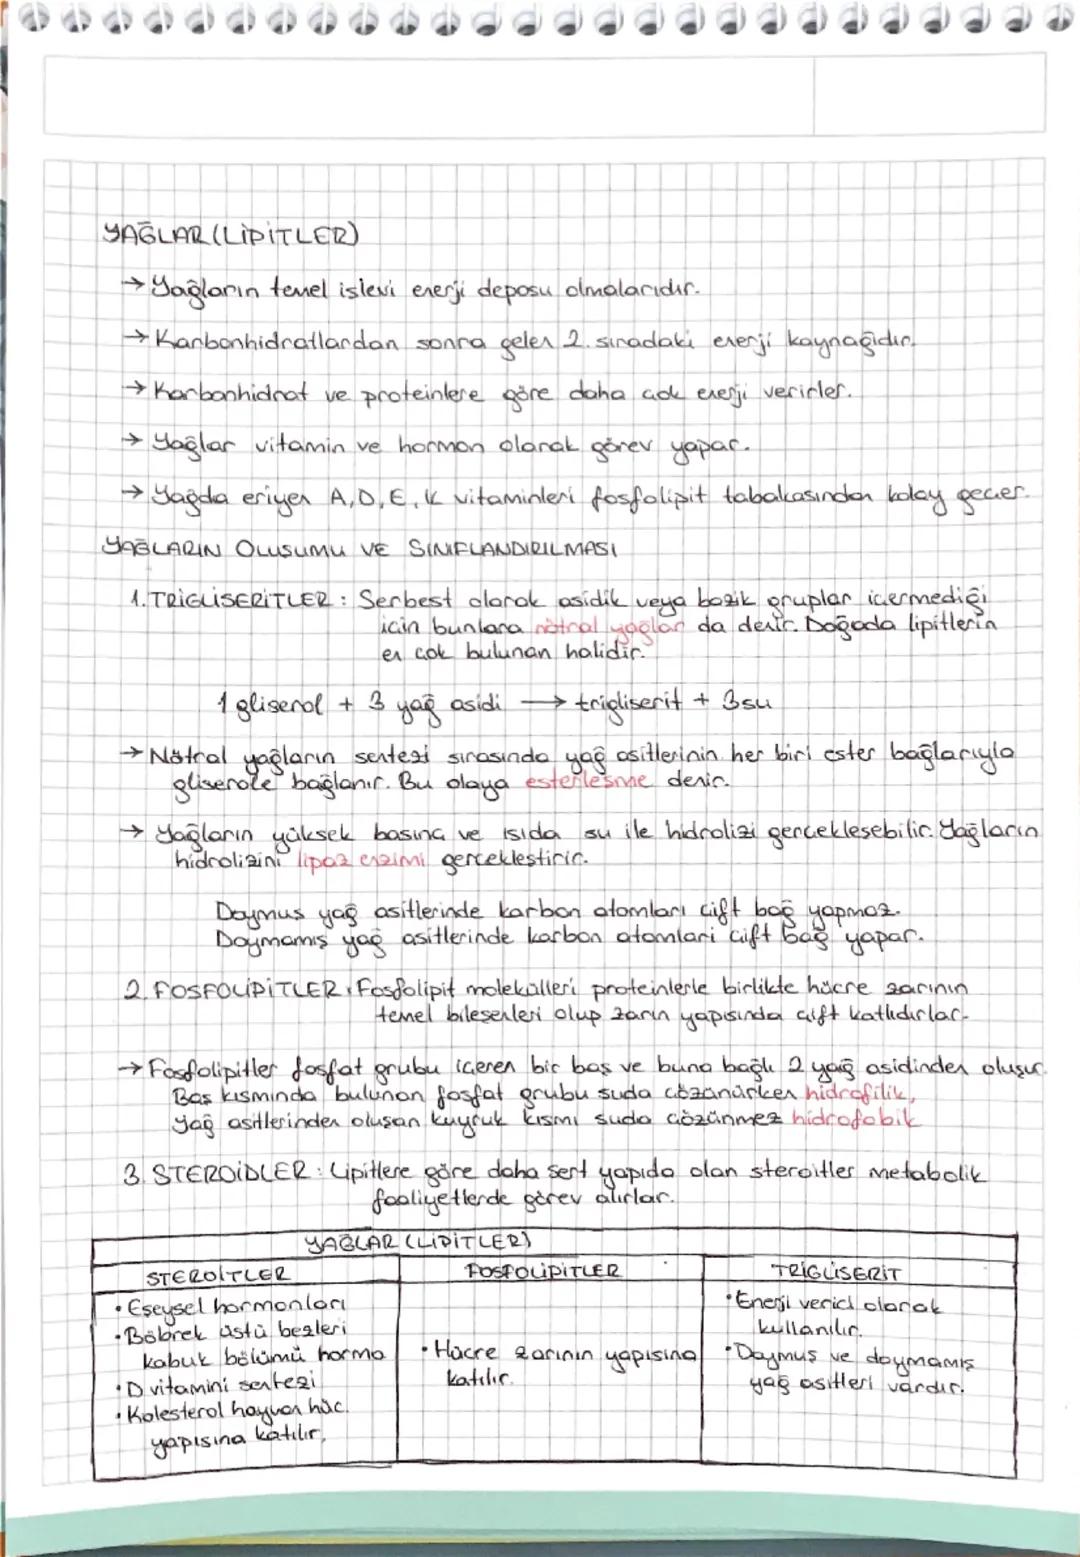 YAĞLAR (LİPİTLER)
→ Yağların temel işlevi enerji deposu olmalarıdır.
→ Karbonhidratlardan sonra gelen 2. sıradaki enerji kaynağıdır.
→ Karbonhidrat ve proteinlere göre daha çok enerji verirler.
→ Yağlar vitamin ve hormon olarak görev yapar.
→ Yağda eriyen A, D, E, K vitaminleri fosfolipit tabakasından kolay geçer.
YAĞLARIN OLUŞUMU VE SINIFLANDIRILMASI
1. TRİGLİSERİTLER : Serbest olarak asidik veya bazik gruplar içermediği
için bunlara nötral yağlar da denir. Doğada lipitlerin
en çok bulunan halidir.
1 gliserol + 3 yağ asidi → trigliserit + 3su
→ Nötral yağların sentezi sırasında yağ asitlerinin her biri ester bağlarıyla
gliserole bağlanır. Bu olaya esterleşme denir.
→ Yağların yüksek basınç ve ısıda su ile hidrolizi gerçekleşebilir. Yağların
hidrolizini lipaz enzimi gerçekleştirir.
Doymuş yağ asitlerinde karbon atomları çift bağ yapmaz.
Doymamış yağ asitlerinde karbon atomları çift bağ yapar.
2. FOSFOLİPİTLER : Fosfolipit molekülleri proteinlerle birlikte hücre zarının
temel bileşenleri olup zarın yapısında çift katlıdırlar.
→ Fosfolipitler fosfat grubu içeren bir baş ve buna bağlı 2 yağ asidinden oluşur.
Baş kısmında bulunan fosfat grubu suda çözünürken hidrofilik,
Yağ asitlerinden oluşan kuyruk kısmı suda çözünmez hidrofobik
3. STEROİDLER : Lipitlere göre daha sert yapıda olan steroitler metabolik
faaliyetlerde görev alırlar.
YAĞLAR (LİPİTLER)
STEROİTLER FOSFOLİPİTLER TRİGLİSERİT
• Eşeysel hormonları
• Böbrek üstü bezleri
kabuk bölümü hormo
• D vitamini sentezi
• Kolesterol hayvan hüc.
yapısına katılır.
• Hücre zarının yapısına
katılır.
• Enerji verici olarak
kullanılır.
• Doymuş ve doymamış
yağ asitleri vardır.